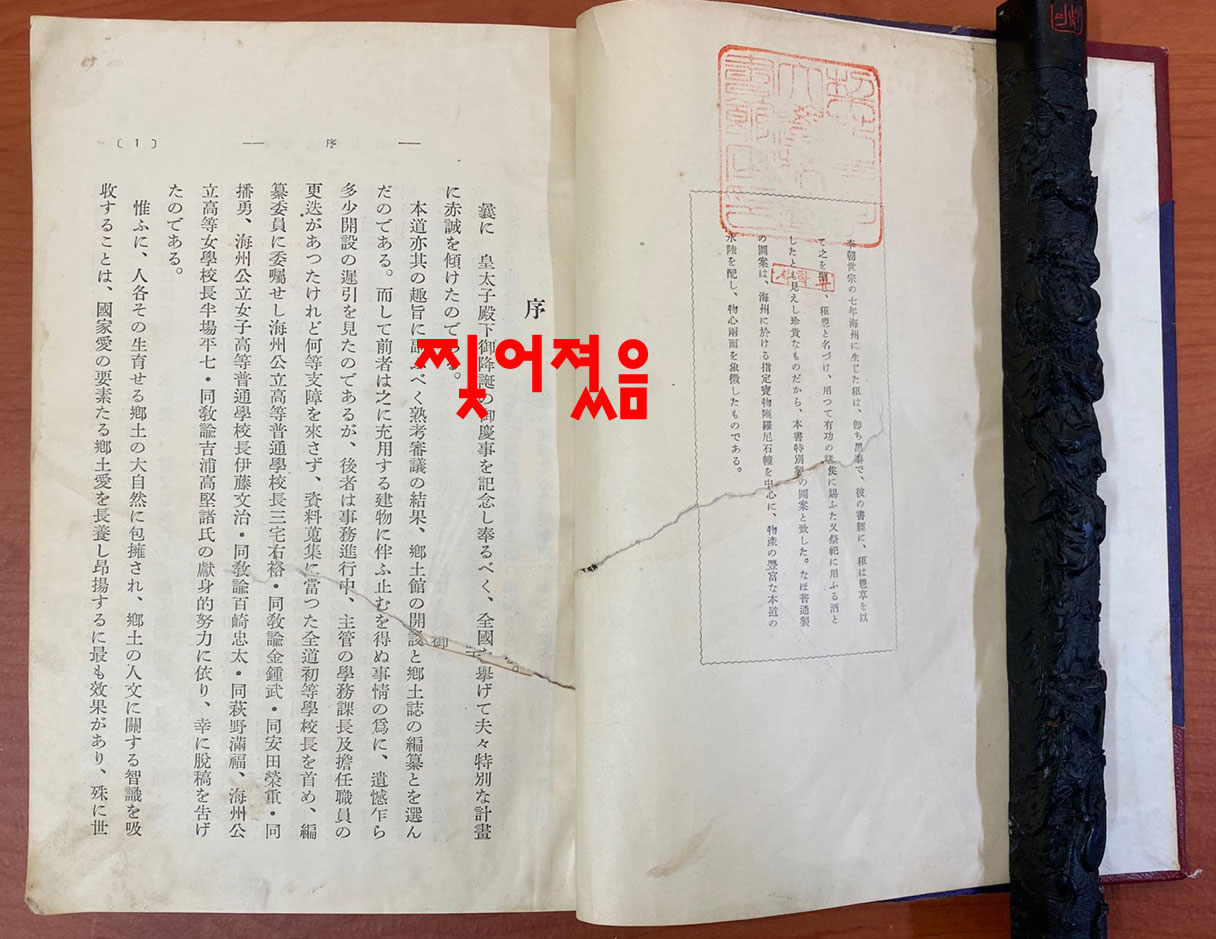 朝世宗の七年海州に生じた秬は、卽ち黑黍で、彼の書經に、秬は鬯草を以
て之を、秬鬯と名づけ、用つて有功の諸侯に賜ふた又祭祀に用ふる酒と
したとも見えし珍貴なものだから、本書特別製の圖案と致した。なほ普通製
の圖案は、海州に於ける指定寶物陀羅尼石幢を中心に、物產の豐富な本道の
水陸を配し、物心兩面を象徵したものである。
찢어졌음
― 序 ― 〔1〕
序
曩に 皇太子殿下御降誕の御慶事を記念し奉るべく、全國を擧げて夫々特別な計畫
に赤誠を傾けたのである。
本道亦其の趣旨に副ふべく熟考審議の結果、鄕土館の開設と鄕土誌の編纂とを選ん
だのである。而して前者は之に充用する建物に伴ふ止むを得ぬ事情の爲に、遺憾乍ら
多少開設の遲引を見たのであるが、後者は事務進行中、主管の學務課長及擔任職員の
更迭があつたけれど何等支障を來さず、資料蒐集に當つた全道初等學校長を首め、編
纂委員に委囑せし海州公立高等普通學校長三宅右裕・同敎諭金鍾武・同安田榮重・同
播勇、海州公立女子高等普通學校長伊藤文治・同敎諭百崎忠太・同萩野滿福、海州公
立高等女學校長半場平七・同敎諭吉浦高堅諸氏の獻身的努力に依り、幸に脫稿を告げ
たのである。
惟ふに、人各その生育せる鄕土の大自然に包擁され、鄕土の人文に關する智識を吸
收することは、國家愛の要素たる鄕土愛を長養し昂揚するに最も效果があり、殊に世